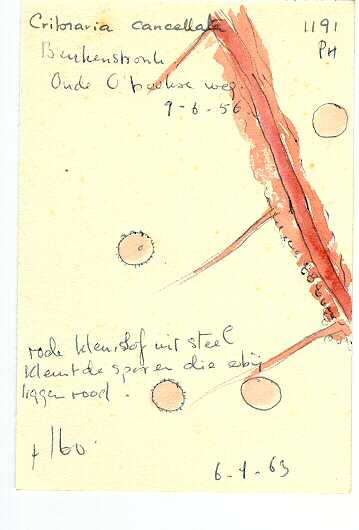 Cribraria cancellata 1191
Beukenstronk PH
Oude O'beekse weg.
9-6-56.
rode kleurstof uit steel
kleurt de sporen die erbij
liggen rood.
160.
6-1-63